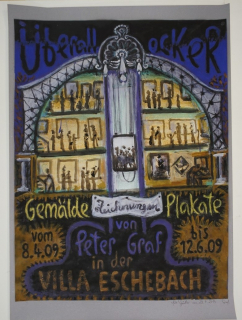 Überall
Gemälde Zeichnungen Plakate
vom von bis
8.4.09 Peter Graf 12.6.09
in der
VILLA ESCHEBACH